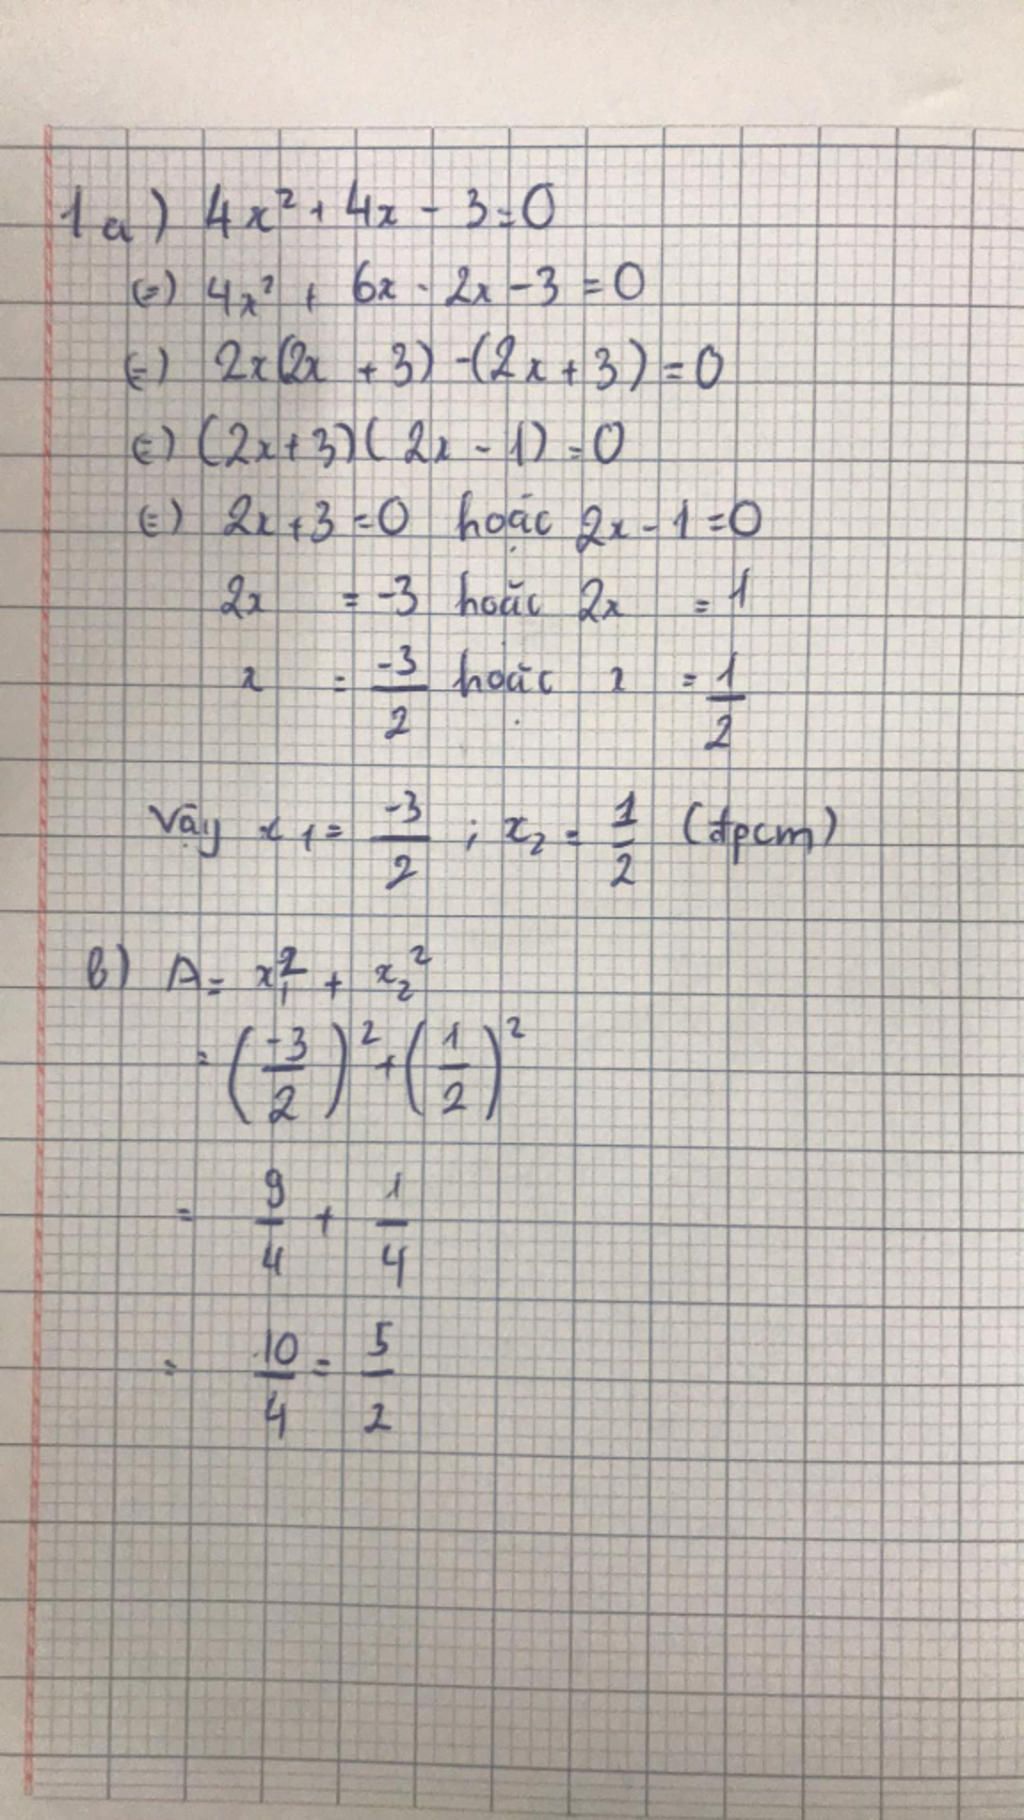 1a) 4x² + 4x - 3 = 0
(=) 4x² + 6x - 2x - 3 = 0
(=) 2x(2x + 3) - (2x + 3) = 0
(=) (2x + 3)(2x - 1) = 0
(=) 2x + 3 = 0 hoặc 2x - 1 = 0
2x = -3 hoặc 2x = 1
x = -3/2 hoặc x = 1/2
Vậy x₁ = -3/2 ; x₂ = 1/2 (đpcm)
b) A = x₁² + x₂²
= (-3/2)² + (1/2)²
= 9/4 + 1/4
= 10/4 = 5/2